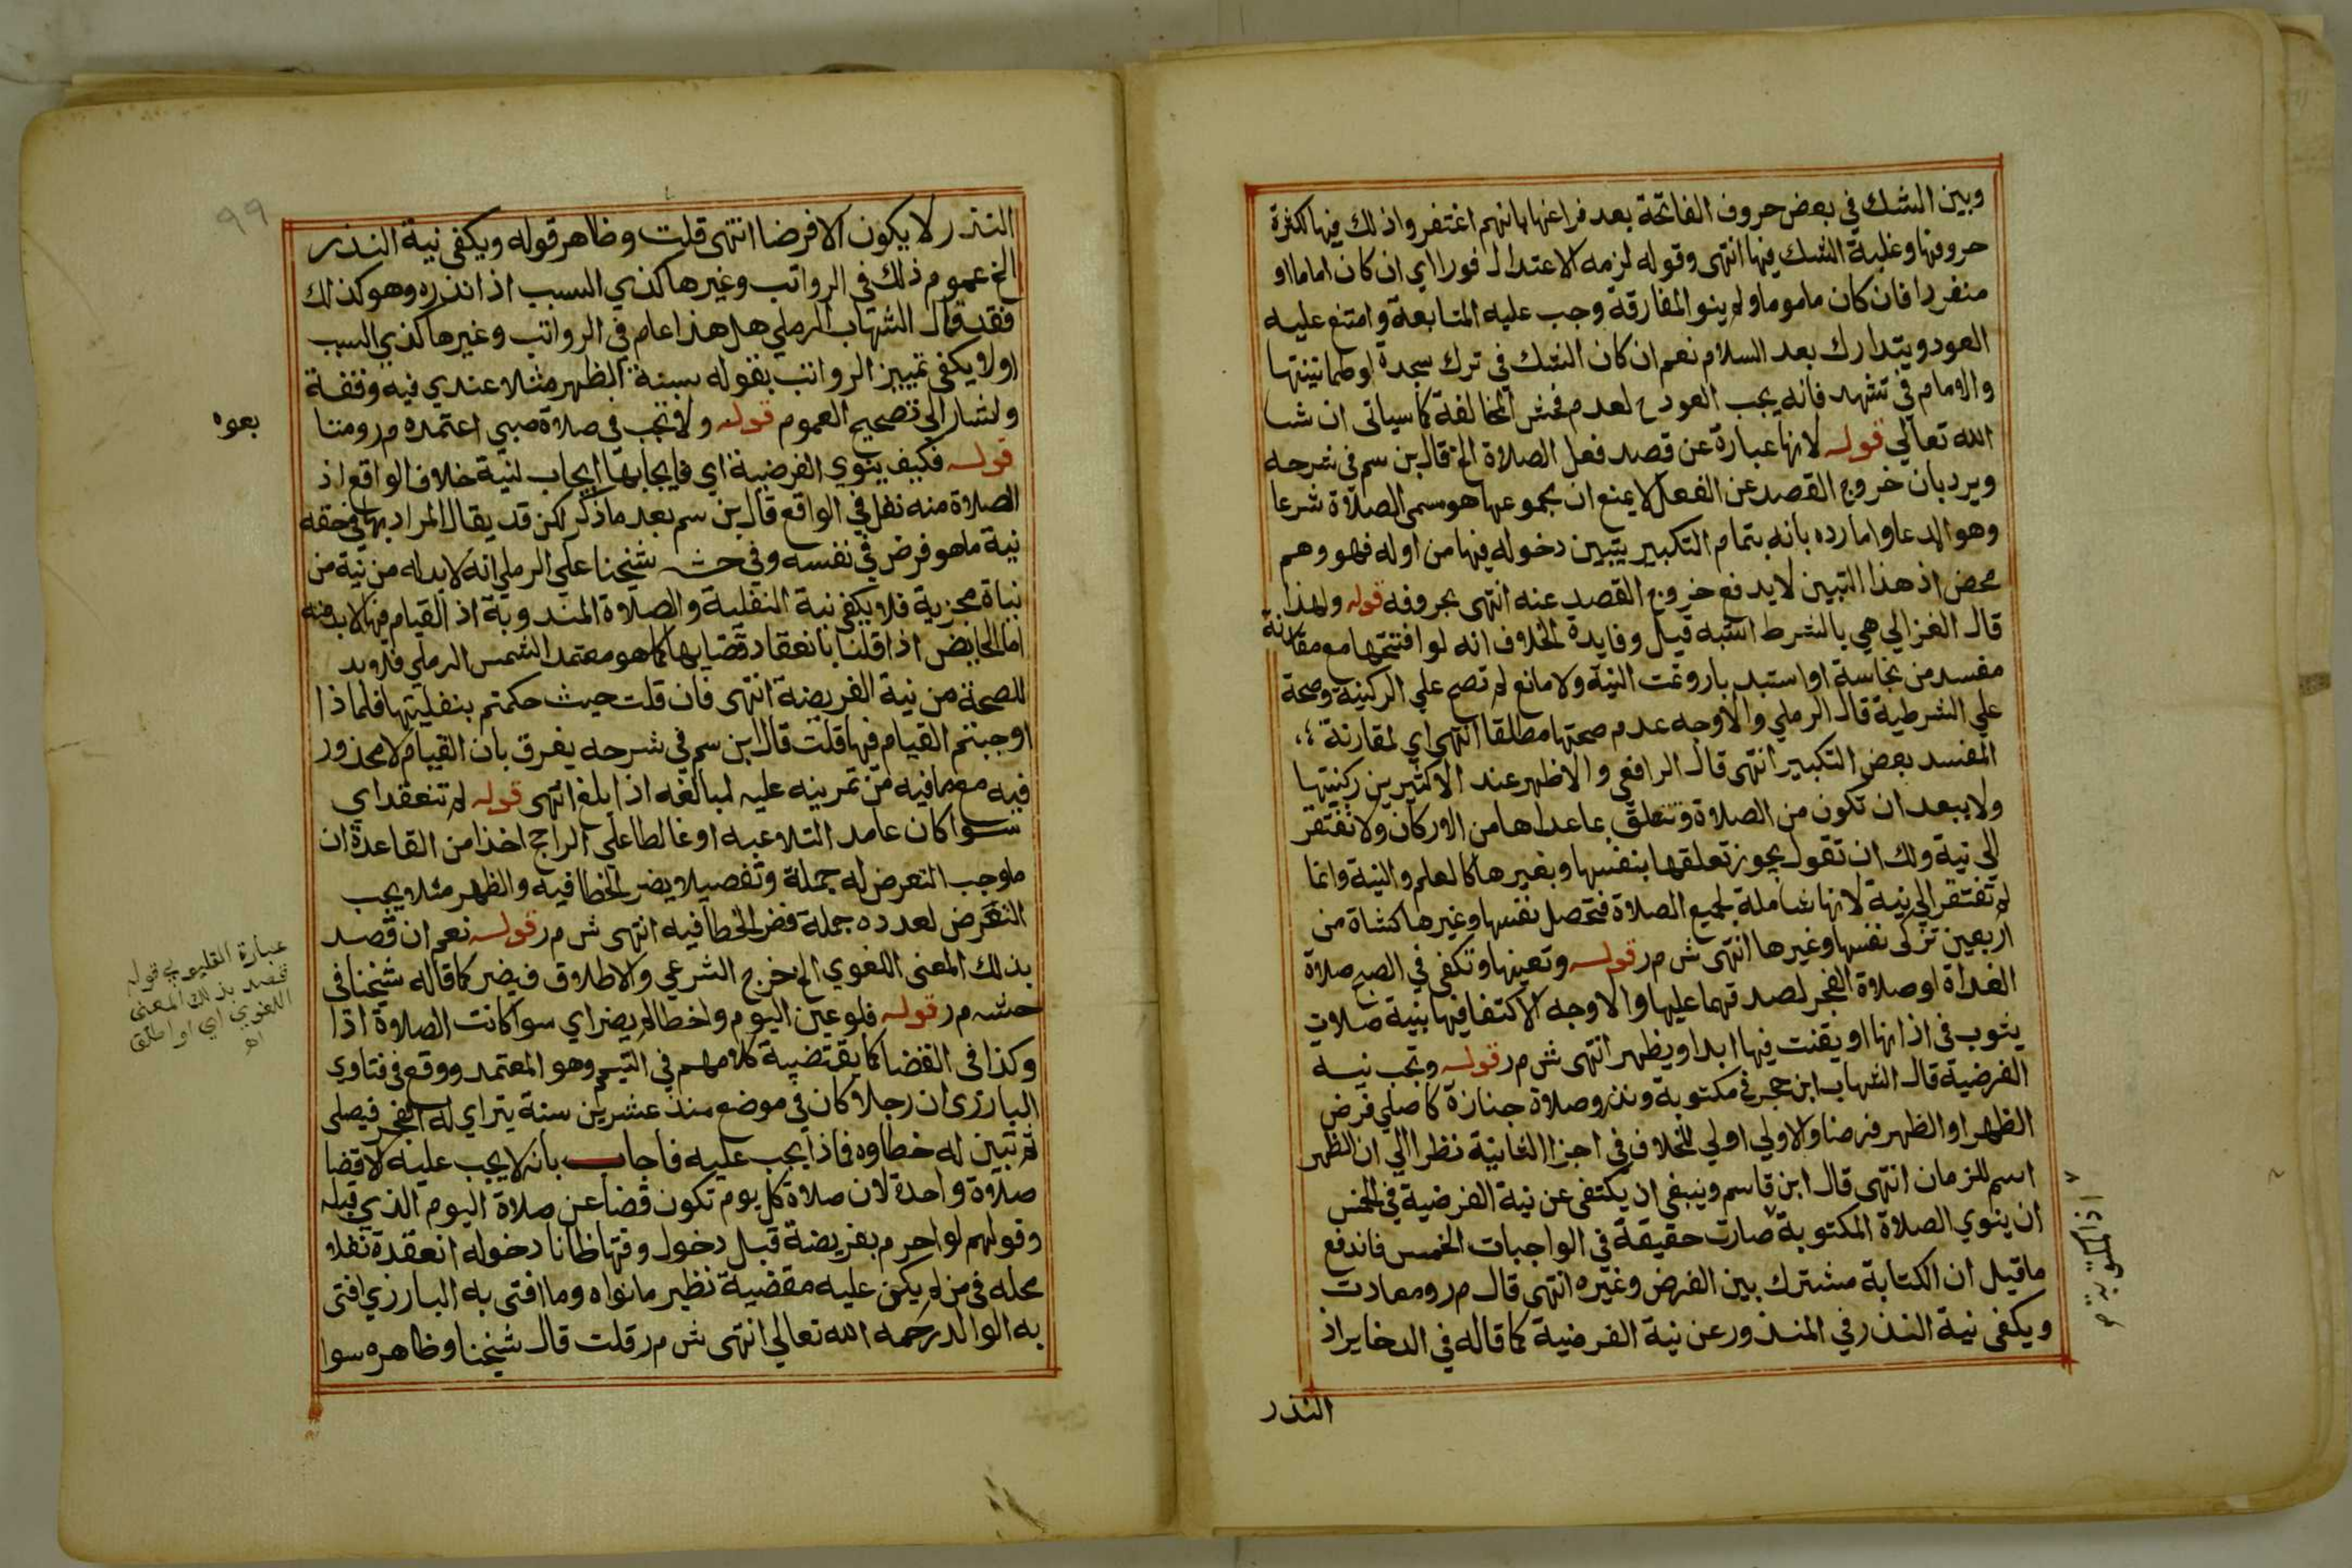 وبين الشك في بعض حروف الفاتحة بعد فراغها بانهم اغتفروا ذلك فيها لكثرة
حروفها وغلبة الشك فيها انتهى وقوله لزمه الاعتدال فورا اي ان كان اماما او
منفردا فان كان ماموما ولم ينو المفارقة وجب عليه المتابعة وامتنع عليه
العود ويتدارك بعد السلام نعم ان كان الشك في ترك سجدة او طمانينتها
والامام في تشهد فانه يجب العود ح لعدم فحش المخالفة كما سياتى ان شا
الله تعالي قوله لانها عبارة عن قصد فعل الصلاة الخ قال بن سم في شرحه
ويرد بان خروج القصد عن الفعل لا يمنع ان مجموعها هو مسمى الصلاة شرعا
وهو المدعا واما رده بانه بتمام التكبير يتبين دخوله فيها من اوله فهو وهم
محض اذ هذا التبين لا يدفع خروج القصد عنه انتهى بحروفه قوله ولهذا
قال الغزالي هي بالشرط اشبه قيل وفايدة الخلاف انه لو افتتحها مع مقارنة
مفسد من نجاسة او استدبار وتمت النية ولا مانع لم تصح علي الركنية وصحة
علي الشرطية قال الرملي والاوجه عدم صحتها مطلقا انتهى اي لمقارنة
المفسد بعض التكبير انتهى قال الرافعي والاظهر عند الاكثرين ركنيتها
ولا يبعد ان تكون من الصلاة وتتعلق بما عداها من الاركان ولا تفتقر
الي نية ولك ان تقول يجوز تعلقها بنفسها وبغيرها كالعلم والنية وانما
لم تفتقر الي نية لانها شاملة لجميع الصلاة فتحصل نفسها وغيرها كشاة من
اربعين تزكى نفسها وغيرها انتهى ش م ر قوله وتعينها وتكفى في الصبح صلاة
الغداة او صلاة الفجر لصدقهما عليها والاوجه الاكتفا فيها بنية صلاة
يثوب في اذانها او يقنت فيها ابدا ويظهر انتهى ش م ر قوله وتجب نية
الفرضية قال الشهاب ابن حجر في مكتوبة ونذر وصلاة جنازة كاصلي فرض
الظهر او الظهر فرضا والاولي اولي للخلاف في اجزا الثانية نظرا الي ان الظهر
اسم للزمان انتهى قال ابن قاسم وينبغى ان يكتفى عن نية الفرضية في الخمس
ان ينوي الصلاة المكتوبة صارت حقيقة في الواجبات الخمس فاندفع
ما قيل ان الكتابة مشترك بين الفرض وغيره انتهى قال م ر ومعادت
ويكفى نية النذر في المنذور عن نية الفرضية كما قاله في الدخاير اذ
النذر
اذ المكتوبة صح
٩٩
النذر لا يكون الا فرضا انتهى قلت وظاهر قوله ويكفى نية النذر
الخ عموم ذلك في الرواتب وغيرها كذي السبب اذا نذره وهو كذلك
فقد قال الشهاب الرملي هل هذا عام في الرواتب وغيرها كذي السبب
اولا ويكفى تمييز الرواتب بقوله بسنة الظهر مثلا عندي فيه وقفة
واشار الى تصحيح العموم قوله ولا تجب في صلاة صبي اعتمده م ر ومتنا
قوله فكيف ينوي الفرضية اي فايجابها ايجاب لنية خلاف الواقع اذ
الصلاة منه نفل في الواقع قال بن سم بعد ما ذكر لكن قد يقال المراد بها في حقه
نية ما هو فرض في نفسه وفي حش شيخنا علي الرملي انه لا بد له من نية من
نياة مجزية فلا يكفى نية النفلية والصلاة المندوبة اذ القيام فيها لا بد منه
اما الحايض اذا قلنا بانعقاد قضايها كما هو معتمد الشمس الرملي فلا بد
للصحة من نية الفريضة انتهى فان قلت حيث حكمتم بنفليتها فلماذا
اوجبتم القيام فيها قلت قال ابن سم في شرحه يفرق بان القيام لا محذور
فيه مع ما فيه من تمرينه عليه لمبالغه اذا بلغ انتهى قوله لم تنعقد اي
سوا كان عامدا لتلاعبه او غالطا على الراجح اخذا من القاعدة ان
ما وجب التعرض له جملة وتفصيلا يضر الخطا فيه والظهر مثلا يجب
التعرض لعدده جملة فضر الخطا فيه انتهى ش م ر قوله نعم ان قصد
بذلك المعنى اللغوي الخ خرج الشرعي والاطلاق فيضر كما قاله شيخنا في
حشه م ر قوله فلو عين اليوم واخطا لم يضر اي سوا كانت الصلاة اذا
وكذا في القضا كما يقتضية كلامهم في التيمم وهو المعتمد ووقع في فتاوي
البارزى ان رجلا كان في موضع منذ عشرين سنة يتراي له الفجر فيصلى
ثم تبين له خطاوه فماذا يجب عليه فاجاب بانه لا يجب عليه الا قضا
صلاة واحدة لان صلاة كل يوم تكون قضا عن صلاة اليوم الذي قبله
وقولهم لو احرم بفريضة قبل دخول وقتها ظانا دخوله انعقدة نفلا
محله في من لم يكن عليه مقضية نظير ما نواه وما افتى به البارزي افتى
به الوالد رحمه الله تعالي انتهى ش م ر قلت قال شيخنا وظاهره سوا
عبارة القليوبي قوله
قصد بذلك المعنى
اللغوي اي او اطلق
اهـ